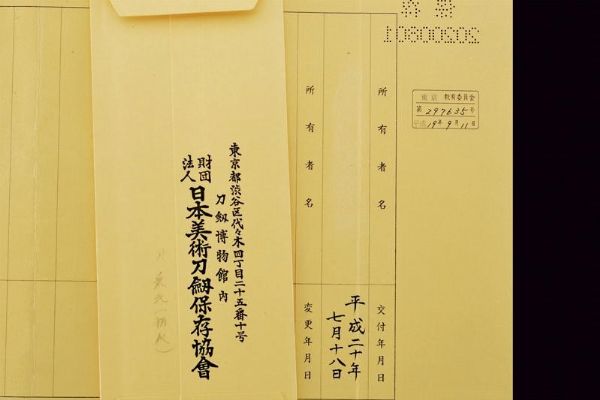 10800202
東京 教育委員会
第 297635 号
平成 19年 9月 11日
所有者名
交付年月日
平成二十年
七月十八日
所有者名
変更年月日
東京都渋谷区代々木四丁目二十五番十号
刀劔博物館内
財団
法人
日本美術刀劔保存協會